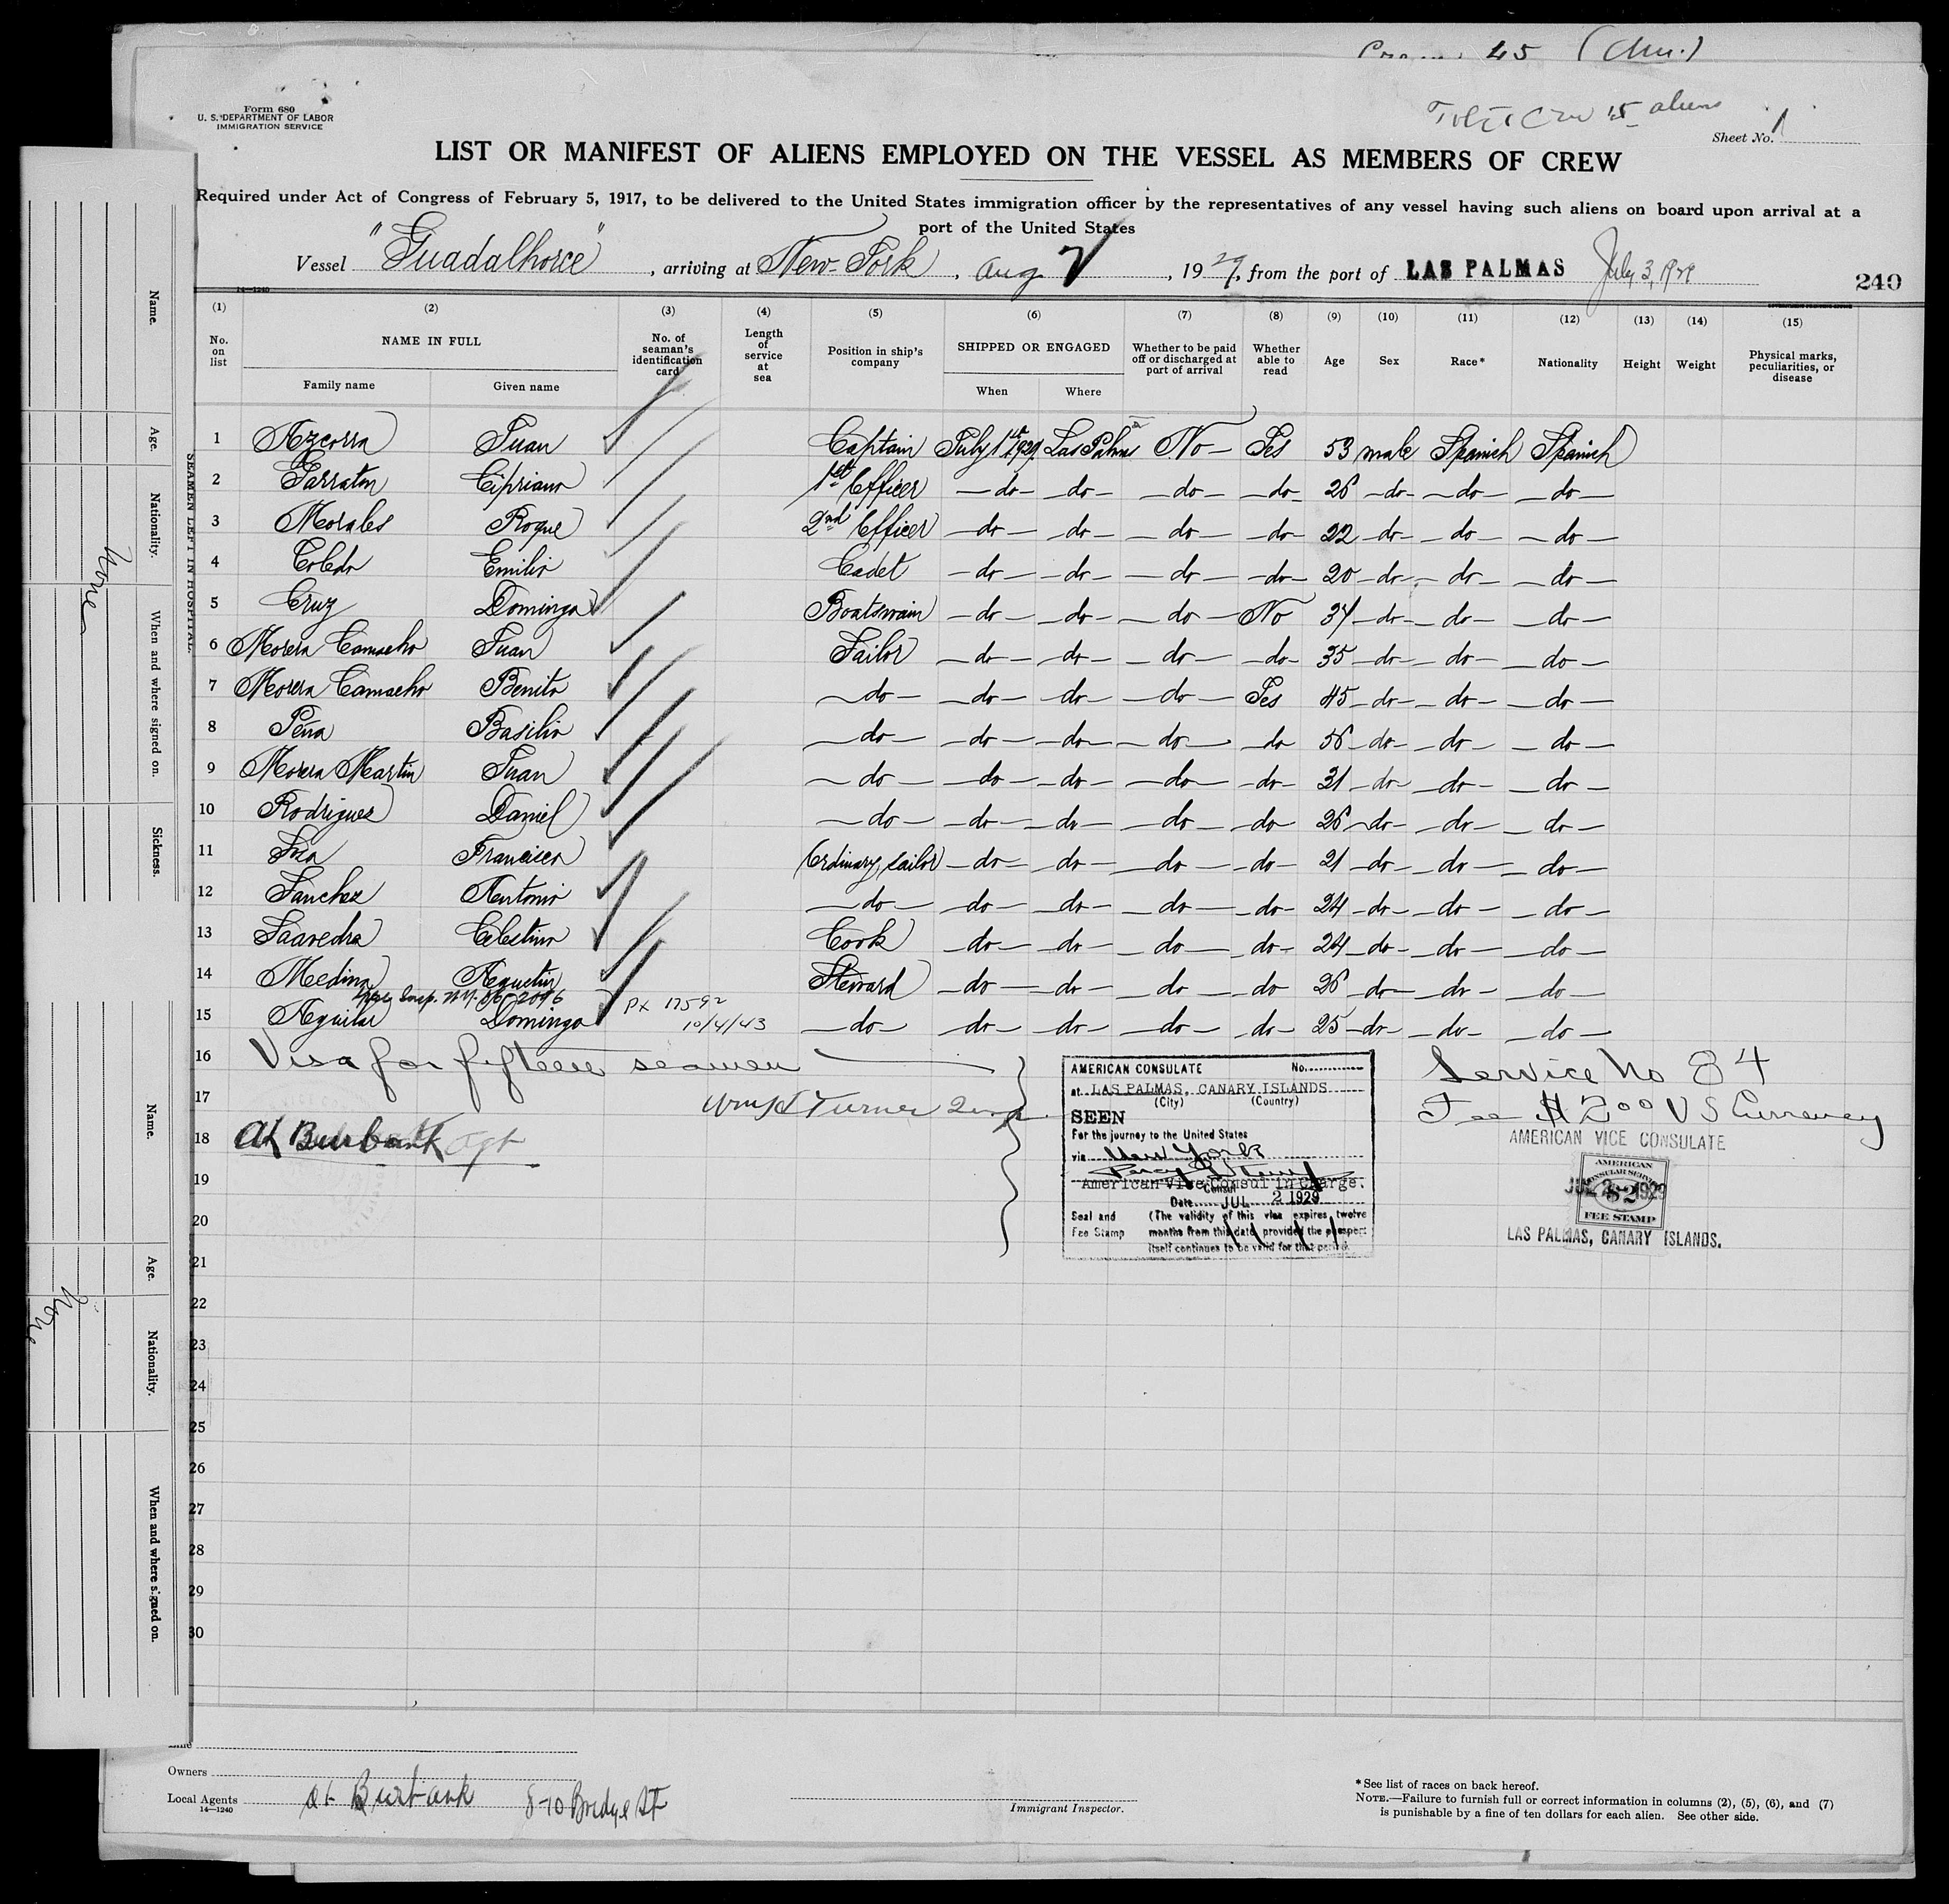 45
Form 680
U. S. DEPARTMENT OF LABOR
IMMIGRATION SERVICE
15 aliens
Sheet No. 1
LIST OR MANIFEST OF ALIENS EMPLOYED ON THE VESSEL AS MEMBERS OF CREW
Required under Act of Congress of February 5, 1917, to be delivered to the United States immigration officer by the representatives of any vessel having such aliens on board upon arrival at a
port of the United States
Vessel "Guadalhorce", arriving at New-York, Aug 7, 1929, from the port of LAS PALMAS July 3, 1929
240
14—1240
(1) (2) (3) (4) (5) (6) (7) (8) (9) (10) (11) (12) (13) (14) (15)
No. on list NAME IN FULL No. of seaman's identification card Length of service at sea Position in ship's company SHIPPED OR ENGAGED Whether to be paid off or discharged at port of arrival Whether able to read Age Sex Race* Nationality Height Weight Physical marks, peculiarities, or disease
Family name Given name When Where
1 Azcorra Juan Captain July 1st 1929 Las Palmas No Yes 53 male Spanish Spanish
2 Garraton Cipriano 1st Officer —do— —do— —do— —do— 26 —do— —do— —do—
3 Morales Roque 2nd Officer —do— —do— —do— —do— 22 —do— —do— —do—
4 Toledo Emilio Cadet —do— —do— —do— —do— 20 —do— —do— —do—
5 Cruz Domingo Boatswain —do— —do— —do— No 34 —do— —do— —do—
6 Morera Camacho Juan Sailor —do— —do— —do— —do— 35 —do— —do— —do—
7 Morera Camacho Benito —do— —do— —do— —do— Yes 45 —do— —do— —do—
8 Peña Basilio —do— —do— —do— —do— —do 56 —do— —do— —do—
9 Morera Martin Juan —do— —do— —do— —do— —do— 31 —do— —do— —do—
10 Rodriguez Daniel —do— —do— —do— —do— —do 26 —do— —do— —do—
11 Francisco Ordinary sailor —do— —do— —do— —do— 21 —do— —do— —do—
12 Sanchez Antonio —do— —do— —do— —do— —do— 24 —do— —do— —do—
13 Saavedra Celestino Cook —do— —do— —do— —do— 24 —do— —do— —do—
14 Medina Agustin Steward —do— —do— —do— —do 26 —do— —do— —do—
Insp. N.Y. 2096
15 Aguilar Domingo PX 17592 10/4/43 —do— —do— —do— —do— —do— 25 —do— —do— —do—
16 Visa for fifteen seamen
Service No 84
17 Turner
Fee $2.00 U S Currency
18 At Burbank Agt
19
20
21
22
23
24
25
26
27
28
29
30
AMERICAN CONSULATE No.
at LAS PALMAS, CANARY ISLANDS
(City) (Country)
SEEN
For the journey to the United States
via New York
American Vice Consul in Charge.
Consul
Date JUL 2 1929
Seal and Fee Stamp
(The validity of this visa expires twelve months from this date provided the passport itself continues to be valid for that period.
AMERICAN VICE CONSULATE
AMERICAN
CONSULAR SERVICE
$2
FEE STAMP
JUL 2 1929
LAS PALMAS, CANARY ISLANDS.
SEAMEN LEFT IN HOSPITAL.
Name. Age. Nationality. When and where signed on. Sickness.
None
Name. Age. Nationality. When and where signed on.
None
Owners
Local Agents At Burbank 8-10 Bridge St
14—1240
Immigrant Inspector.
* See list of races on back hereof.
NOTE.—Failure to furnish full or correct information in columns (2), (5), (6), and (7)
is punishable by a fine of ten dollars for each alien. See other side.